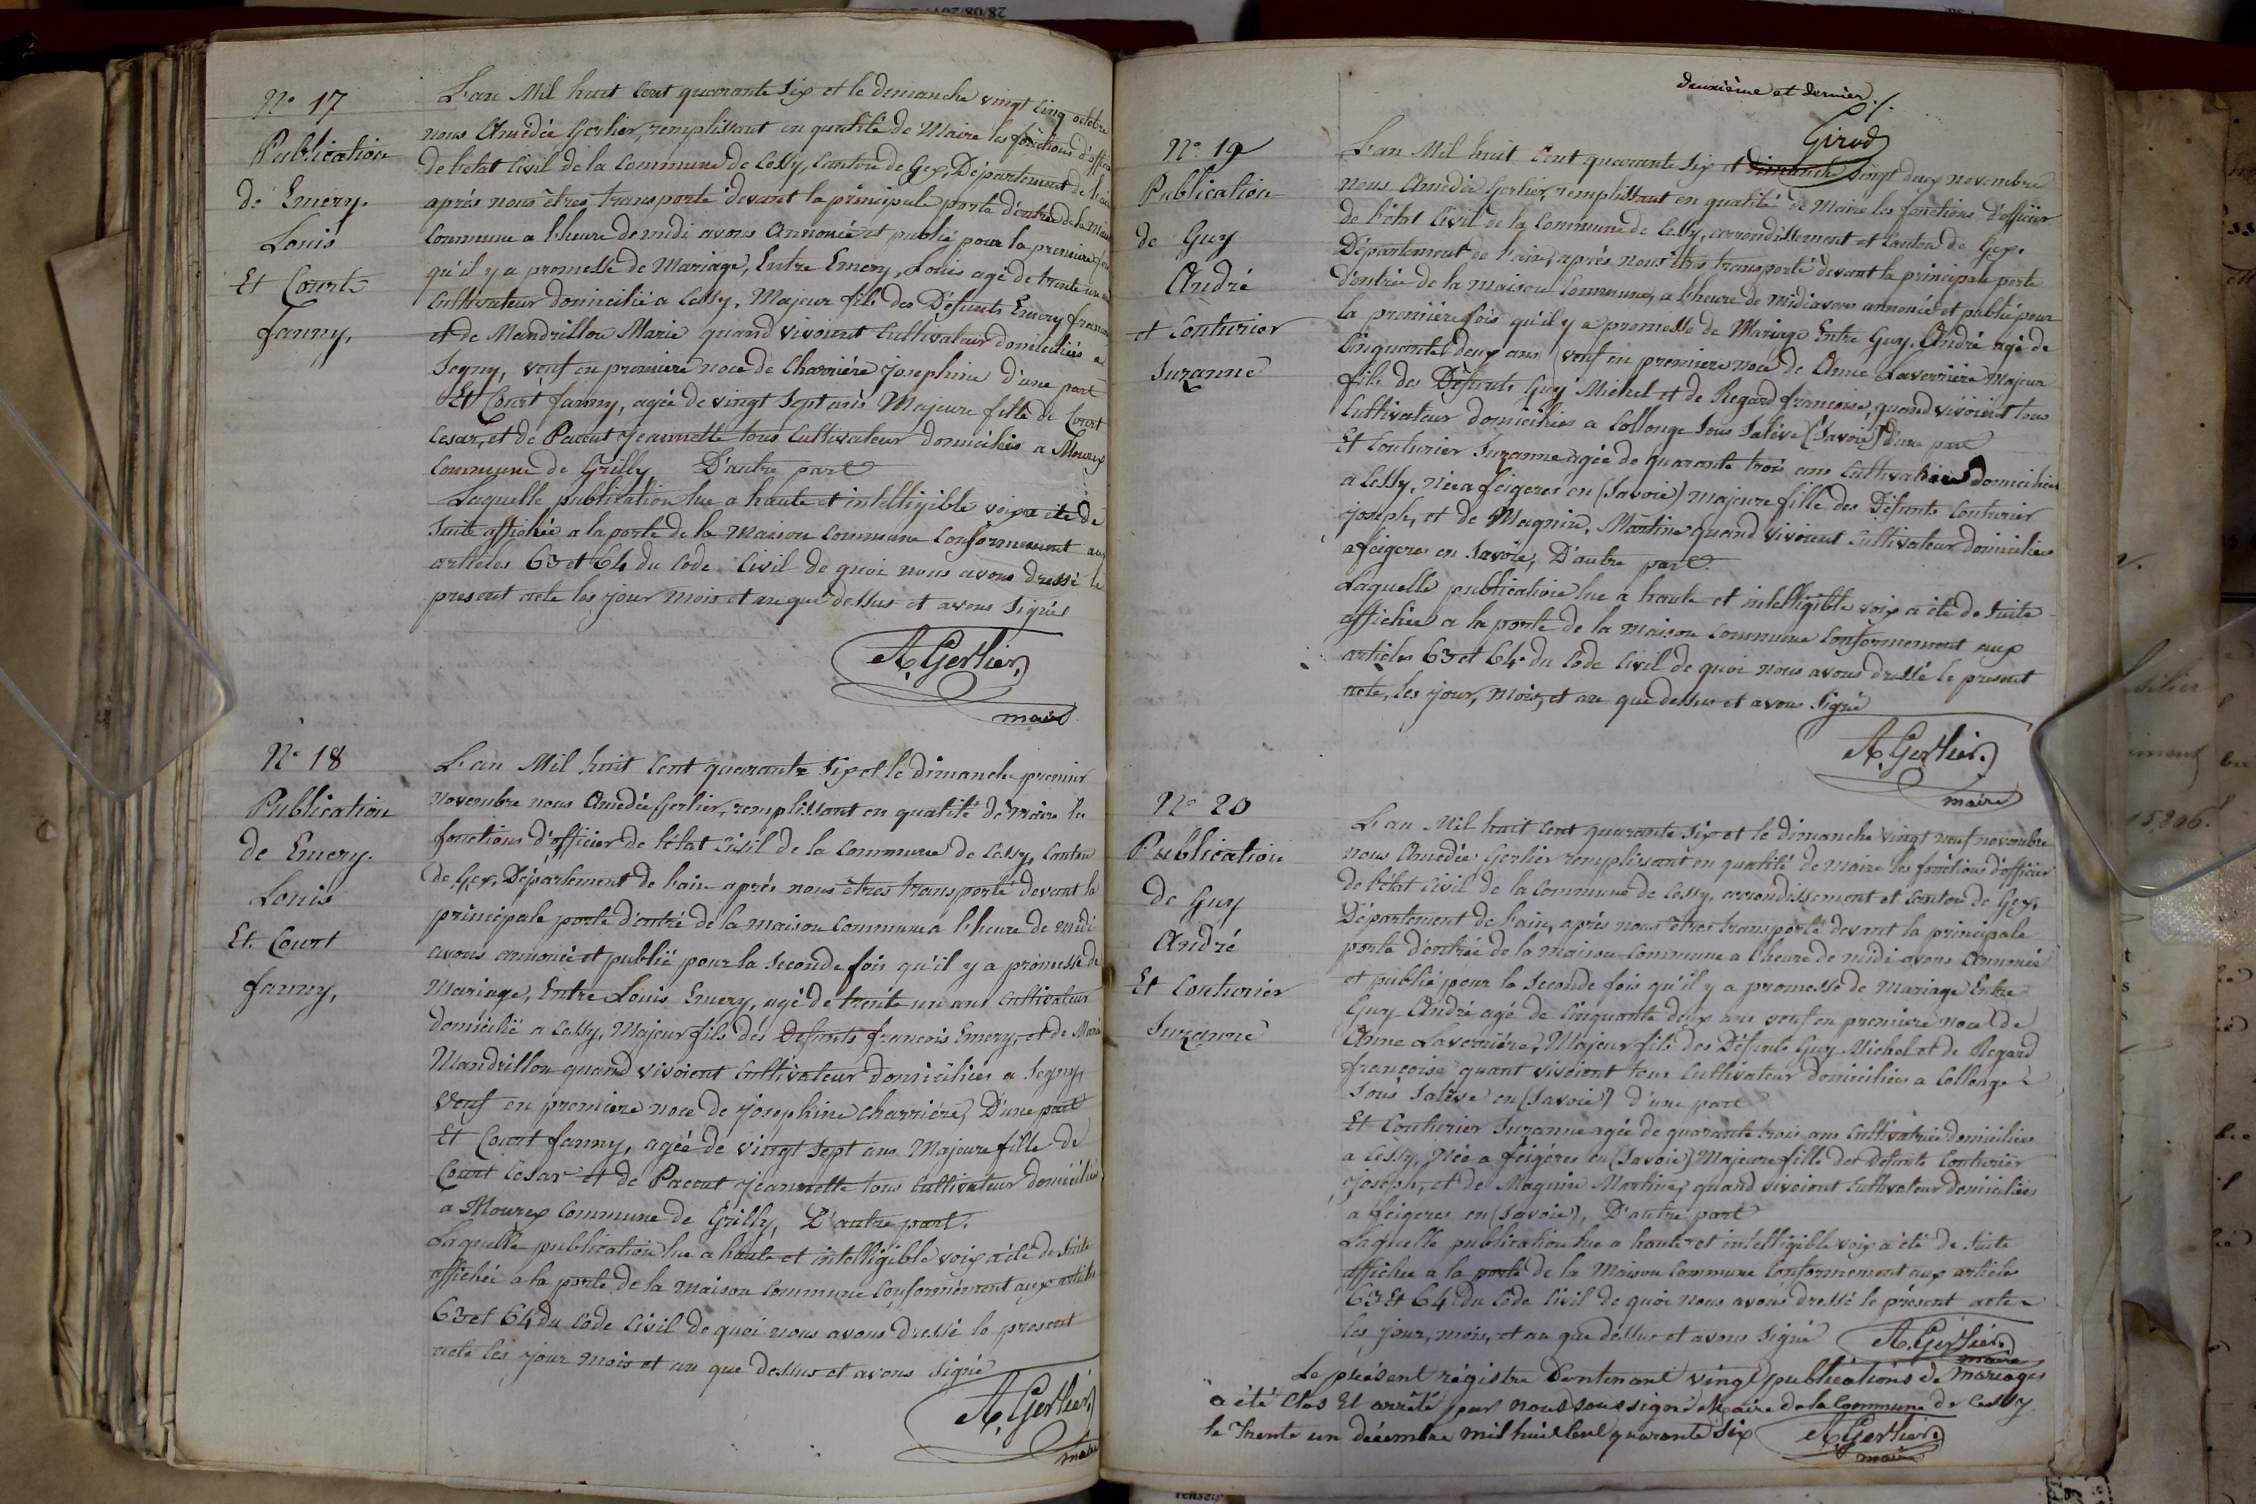 N° 17
Publication
de Emery.
Louis
Et Courte
fanny,
L'an Mil huit Cent quarante Six et le demanche vingt Cinq octobre
nous Amédée Gerlier, remplissant en qualité de Maire les fonctions d'officier
de l'etat Civil de la Commune de Cessy, Canton de Gex, Département de l'ain
aprés nous êtres transporté devant la principale porte d'entré de la Maison
Commune a l'heure de midi avons Annoncé et publié pour la premiere fois
qu'il y a promesse de Mariage, Entre Emery, Louis agé de trente un ans
Cultivateur domicilié a Cessy, Majeur fils des Défunts Emery francois
et de Mandrillon Marie quand vivoient Cultivateur domiciliés a
Segny, veuf en premiere noce de Charriére Josephine d'une part
Et Court fanny, agée de vingt Sept ans Majeure fille de Court
Cesar, et de Pacout Jeannette tous Cultivateur domiciliés a Mourex
Commune de Grilly D'autre part
Laquelle publication lue a haute et intelligible voix a été de
Suite affichée a la porte de la Maison Commune Conformement aux
articles 63 et 64 du Code Civil de quoi nous avons dressé le
present acte les jour mois et an que dessus et avons Signés
A. Gerlier.
maire
N° 18
Publication
de Emery.
Louis
Et Court
fanny,
L'an Mil huit Cent quarante Six et le dimanche premier
Novembre nous Amédée Gerlier, remplissant en qualité de Maire les
fonctions d'officier de l'état Civil de la Commune de Cessy, Canton
de Gex, Département de l'ain aprés nous êtres transporté devant la
principale porte d'entré de la maison Commune a l'heure de midi
avons annoncé et publié pour la Seconde fois qu'il y a promesse de
Mariage, Entre Louis Emery, agé de trente un ans Cultivateur
domicilié a Cessy, Majeur fils des Défunts francois Emery, et de Marie
Mandrillon quand vivoient Cultivateur domiciliés a Segny,
Veuf en premiere noce de Josephine Charriére, D'une part
Et Court fanny, agée de vingt Sept ans Majeure fille de
Court Cesar et de Pacout Jeannette tous Cultivateur domiciliés
a Mourex Commune de Grilly, D'autre part.
Laquelle publication lue a haute et intelligible voix a été de Suite
affichée a la porte de la maison Commune Conformément aux articles
63 et 64 du Code Civil de quoi nous avons dressé le present
acte les jour mois et an que dessus et avons Signé
A. Gerlier.
maire
deuxième et dernier./.
Girod
N° 19
Publication
de Guy
André
et Couturier
Suzanne
L'an Mil huit Cent quarante Six et dimanche vingt deux novembre
nous Amédée Gerlier, remplissant en qualité de Maire les fonctions d'officier
de l'état Civil de la Commune de Cessy, arrondissement et Canton de Gex.
Département de l'ain, aprés nous êtres transporté devant la principale porte
d'entrée de la maison Commune, a l'heure de midi avons annoncé et publié pour
la premiére fois qu'il y a promesse de Mariage Entre Guy, André agé de
Cinquante deux ans veuf en premiere noce de Anne Laverriére Majeur
fils des Défunts Guy Michel et de Regard francoise, quand vivoient tous
Cultivateur domiciliés a Collonge Sous Salève (Savoie) D'une part
Et Couturier Suzanne agée de quarante trois ans Cultivatrice domiciliée
a Cessy, Née a feigeres en (Savoie) majeure fille des Défunts Couturier
Joseph, et de Magnin, Martine quand vivoient Cultivateur domiciliés
a feigeres en Savoie, D'autre part
Laquelle publication lue a haute et intelligible voix a été de Suite
affichée a la porte de la maison Commune Conformement aux
articles 63 et 64 du Code Civil de quoi nous avons dressé le present
acte, les jour, mois, et an que dessus et avons Signé
A. Gerlier.
maire
N° 20
Publication
de Guy
André
Et Couturier
Suzanne
L'an Mil huit Cent quarante Six et le dimanche vingt neuf novembre
nous Amédée Gerlier remplissant en qualité de maire les fonctions d'officier
de l'état Civil de la Commune de Cessy, arrondissement et Canton de Gex.
Département de l'ain, aprés nous êtres transporté devant la principale
porte d'entrée de la maison Commune a l'heure de midi avons Annoncé
et publié pour la Seconde fois qu'il y a promesse de Mariage Entre
Guy André agé de Cinquante deux ans veuf en premiere noce de
Anne Laverriére, Majeur fils des Défunts Guy Michel et de Regard
francoise quant vivoient tous Cultivateur domiciliés a Collonge
Sous Salève en (Savoie) d'une part
Et Couturier Suzanne agée de quarante trois ans Cultivatrice domiciliée
a Cessy, Née a feigéres en (Savoie) Majeure fille des défunts Couturier
Joseph, et de Magnin Martine, quand vivoient Cultivateur domiciliés
a feigeres en (Savoie), D'autre part
Laquelle publication lue a haute et intélligible voix a été de Suite
affichée a la porte de la Maison Commune Conformement aux articles
63 Et 64 du Code Civil de quoi nous avons dressé le présent acte
les jour, mois, et an que dessus et avons Signé A. Gerlier.
maire
Le présent régistre Contenant vingt publications de mariages
a été Clos Et arrêté par nous soussigné Maire de la Commune de Cessy
le Trente un décembre mil huit Cent quarante Six A. Gerlier
maire